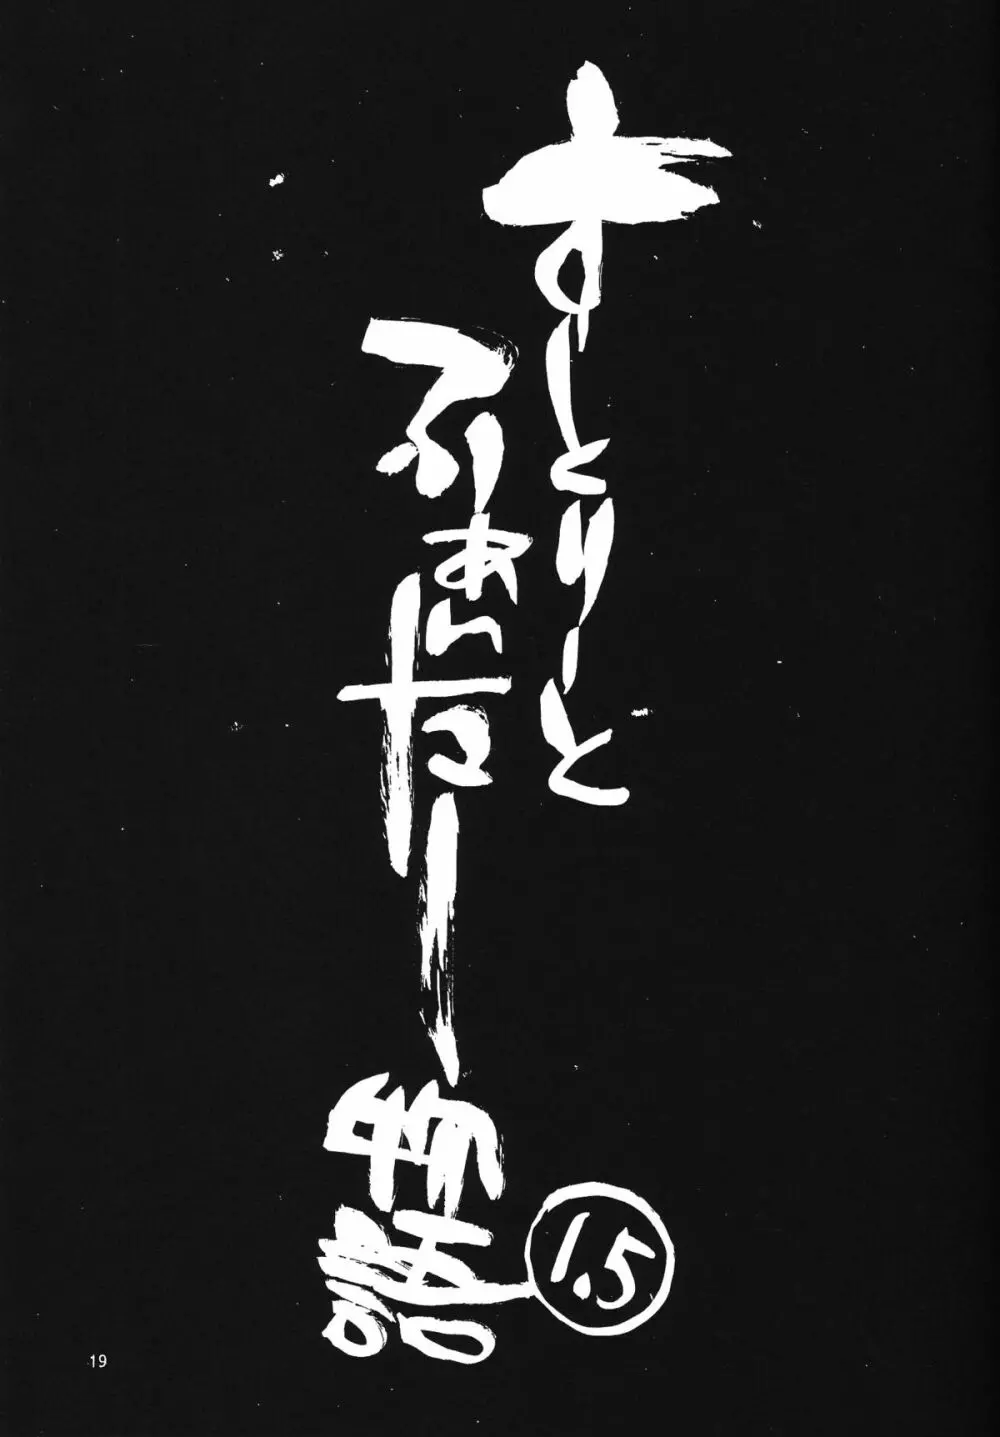 すとりーと
ふぁいたー
物語
1.5
19